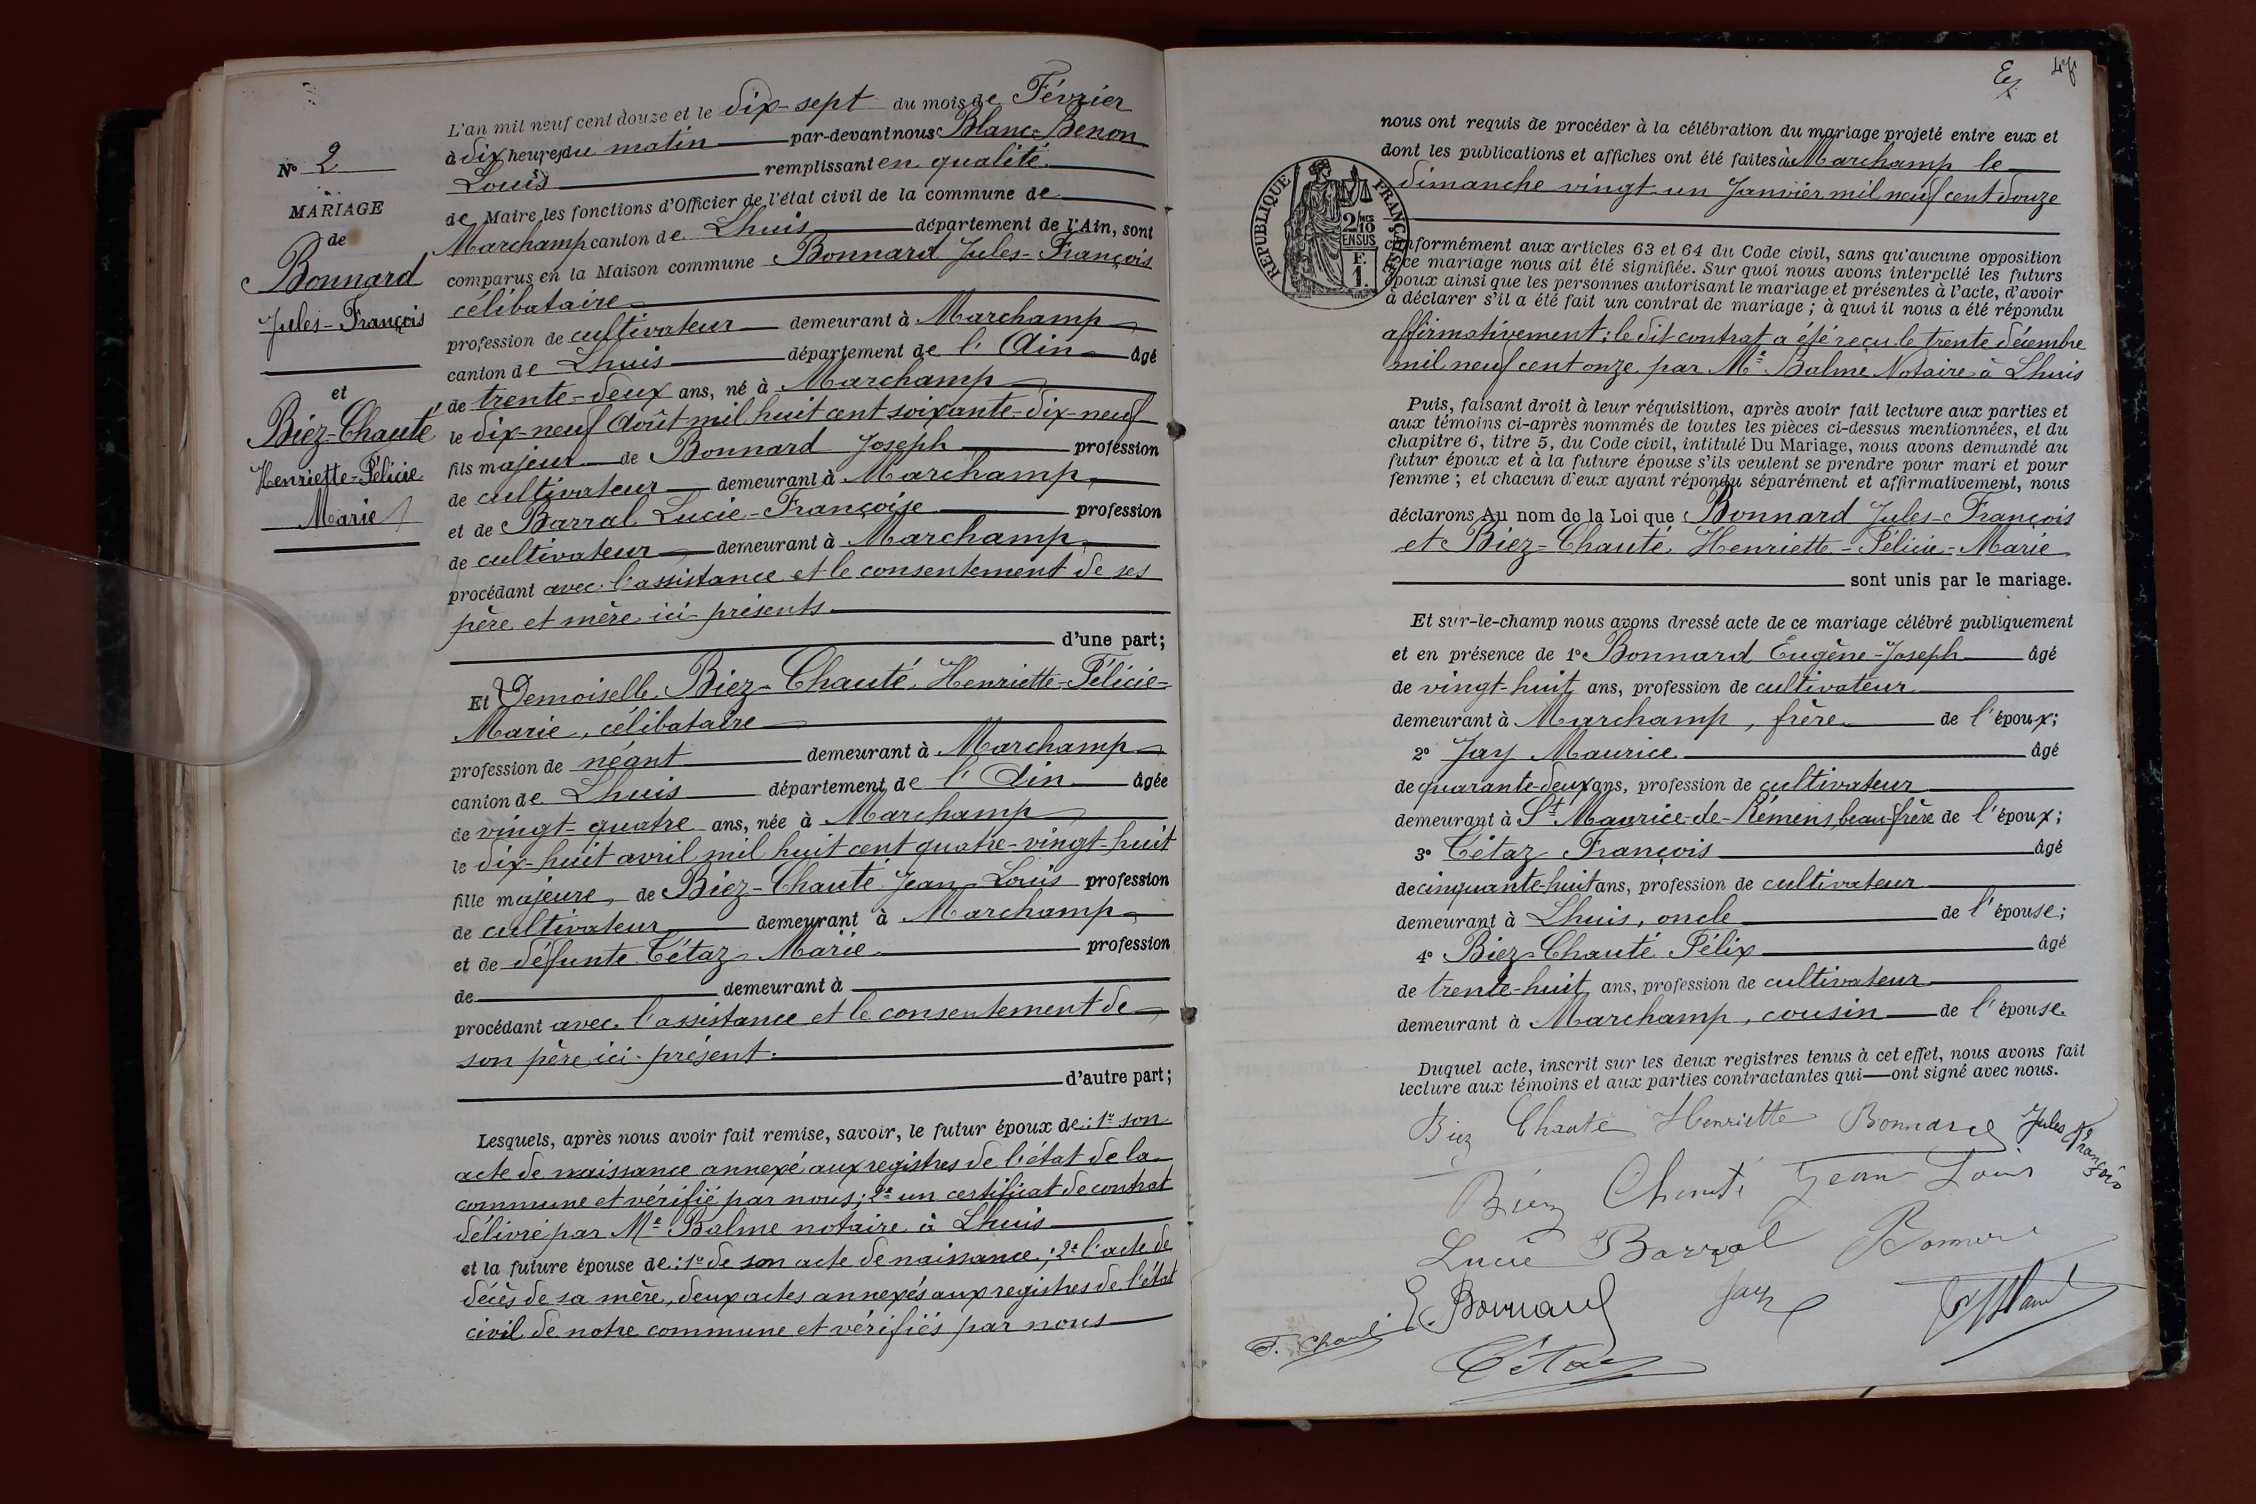 N° 2
MARIAGE
de
Bonnard
Jules-François
et
Biez-Chauté
Henriette-Félicie
Marie
L'an mil neuf cent douze et le dix-sept du mois de Février
à dix heures du matin par-devant nous Blanc-Benon
Louis remplissant en qualité
de Maire les fonctions d'Officier de l'état civil de la commune de
Marchamp canton de Lhuis département de l'Ain, sont
comparus en la Maison commune Bonnard Jules-François
célibataire
profession de cultivateur demeurant à Marchamp
canton de Lhuis département de l'Ain âgé
de trente-deux ans, né à Marchamp
le dix-neuf Août mil huit cent soixante-dix-neuf
fils majeur de Bonnard Joseph profession
de cultivateur demeurant à Marchamp
et de Barral Lucie-Françoise profession
de cultivateur demeurant à Marchamp
procédant avec l'assistance et le consentement de ses
père et mère ici présents
d'une part;
Et Demoiselle Biez-Chauté Henriette-Félicie-
Marie, célibataire
profession de néant demeurant à Marchamp
canton de Lhuis département de l'Ain âgée
de vingt-quatre ans, née à Marchamp
le dix-huit avril mil huit cent quatre-vingt-huit
fille majeure de Biez-Chauté Jean-Louis profession
de cultivateur demeurant à Marchamp
et de défunte Cétaz Marie profession
de demeurant à
procédant avec l'assistance et le consentement de
son père ici présent.
d'autre part;
Lesquels, après nous avoir fait remise, savoir, le futur époux de: 1° son
acte de naissance annexé aux registres de l'état de la
commune et vérifié par nous; 2° un certificat de contrat
délivré par Me Balme notaire à Lhuis
et la future épouse de: 1° de son acte de naissance; 2° l'acte de
décès de sa mère, deux actes annexés aux registres de l'état
civil de notre commune et vérifiés par nous
Ex.
47
RÉPUBLIQUE FRANÇAISE
2/10 EN SUS
F. 1.
nous ont requis de procéder à la célébration du mariage projeté entre eux et
dont les publications et affiches ont été faites à Marchamp le
dimanche vingt un Janvier mil neuf cent douze
conformément aux articles 63 et 64 du Code civil, sans qu'aucune opposition
ce mariage nous ait été signifiée. Sur quoi nous avons interpellé les futurs
époux ainsi que les personnes autorisant le mariage et présentes à l'acte, d'avoir
à déclarer s'il a été fait un contrat de mariage; à quoi il nous a été répondu
affirmativement: le dit contrat a été reçu le trente décembre
mil neuf cent onze par Me Balme Notaire à Lhuis
Puis, faisant droit à leur réquisition, après avoir fait lecture aux parties et
aux témoins ci-après nommés de toutes les pièces ci-dessus mentionnées, et du
chapitre 6, titre 5, du Code civil, intitulé Du Mariage, nous avons demandé au
futur époux et à la future épouse s'ils veulent se prendre pour mari et pour
femme; et chacun d'eux ayant répondu séparément et affirmativement, nous
déclarons Au nom de la Loi que Bonnard Jules-François
et Biez-Chauté Henriette-Félicie-Marie
sont unis par le mariage.
Et sur-le-champ nous avons dressé acte de ce mariage célébré publiquement
et en présence de 1° Bonnard Eugène-Joseph âgé
de vingt-huit ans, profession de cultivateur
demeurant à Marchamp, frère de l'époux;
2° Jay Maurice âgé
de quarante-deux ans, profession de cultivateur
demeurant à St Maurice-de-Rémens, beau-frère de l'époux;
3° Cétaz François âgé
de cinquante-huit ans, profession de cultivateur
demeurant à Lhuis, oncle de l'épouse;
4° Biez-Chauté Félix âgé
de trente-huit ans, profession de cultivateur
demeurant à Marchamp, cousin de l'épouse.
Duquel acte, inscrit sur les deux registres tenus à cet effet, nous avons fait
lecture aux témoins et aux parties contractantes qui ont signé avec nous.
Biez Chauté Henriette Bonnard Jules François
Biez Chauté Jean Louis
Lucie Barral Bonnard
E. Bonnard Jay
F. Chauté
Cétaz